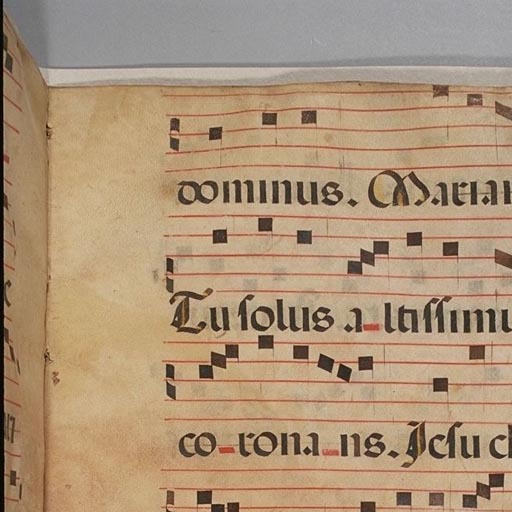 dominus. Mariam
Tu solus a_ltissimu
co_rona_ns. Jesu ch